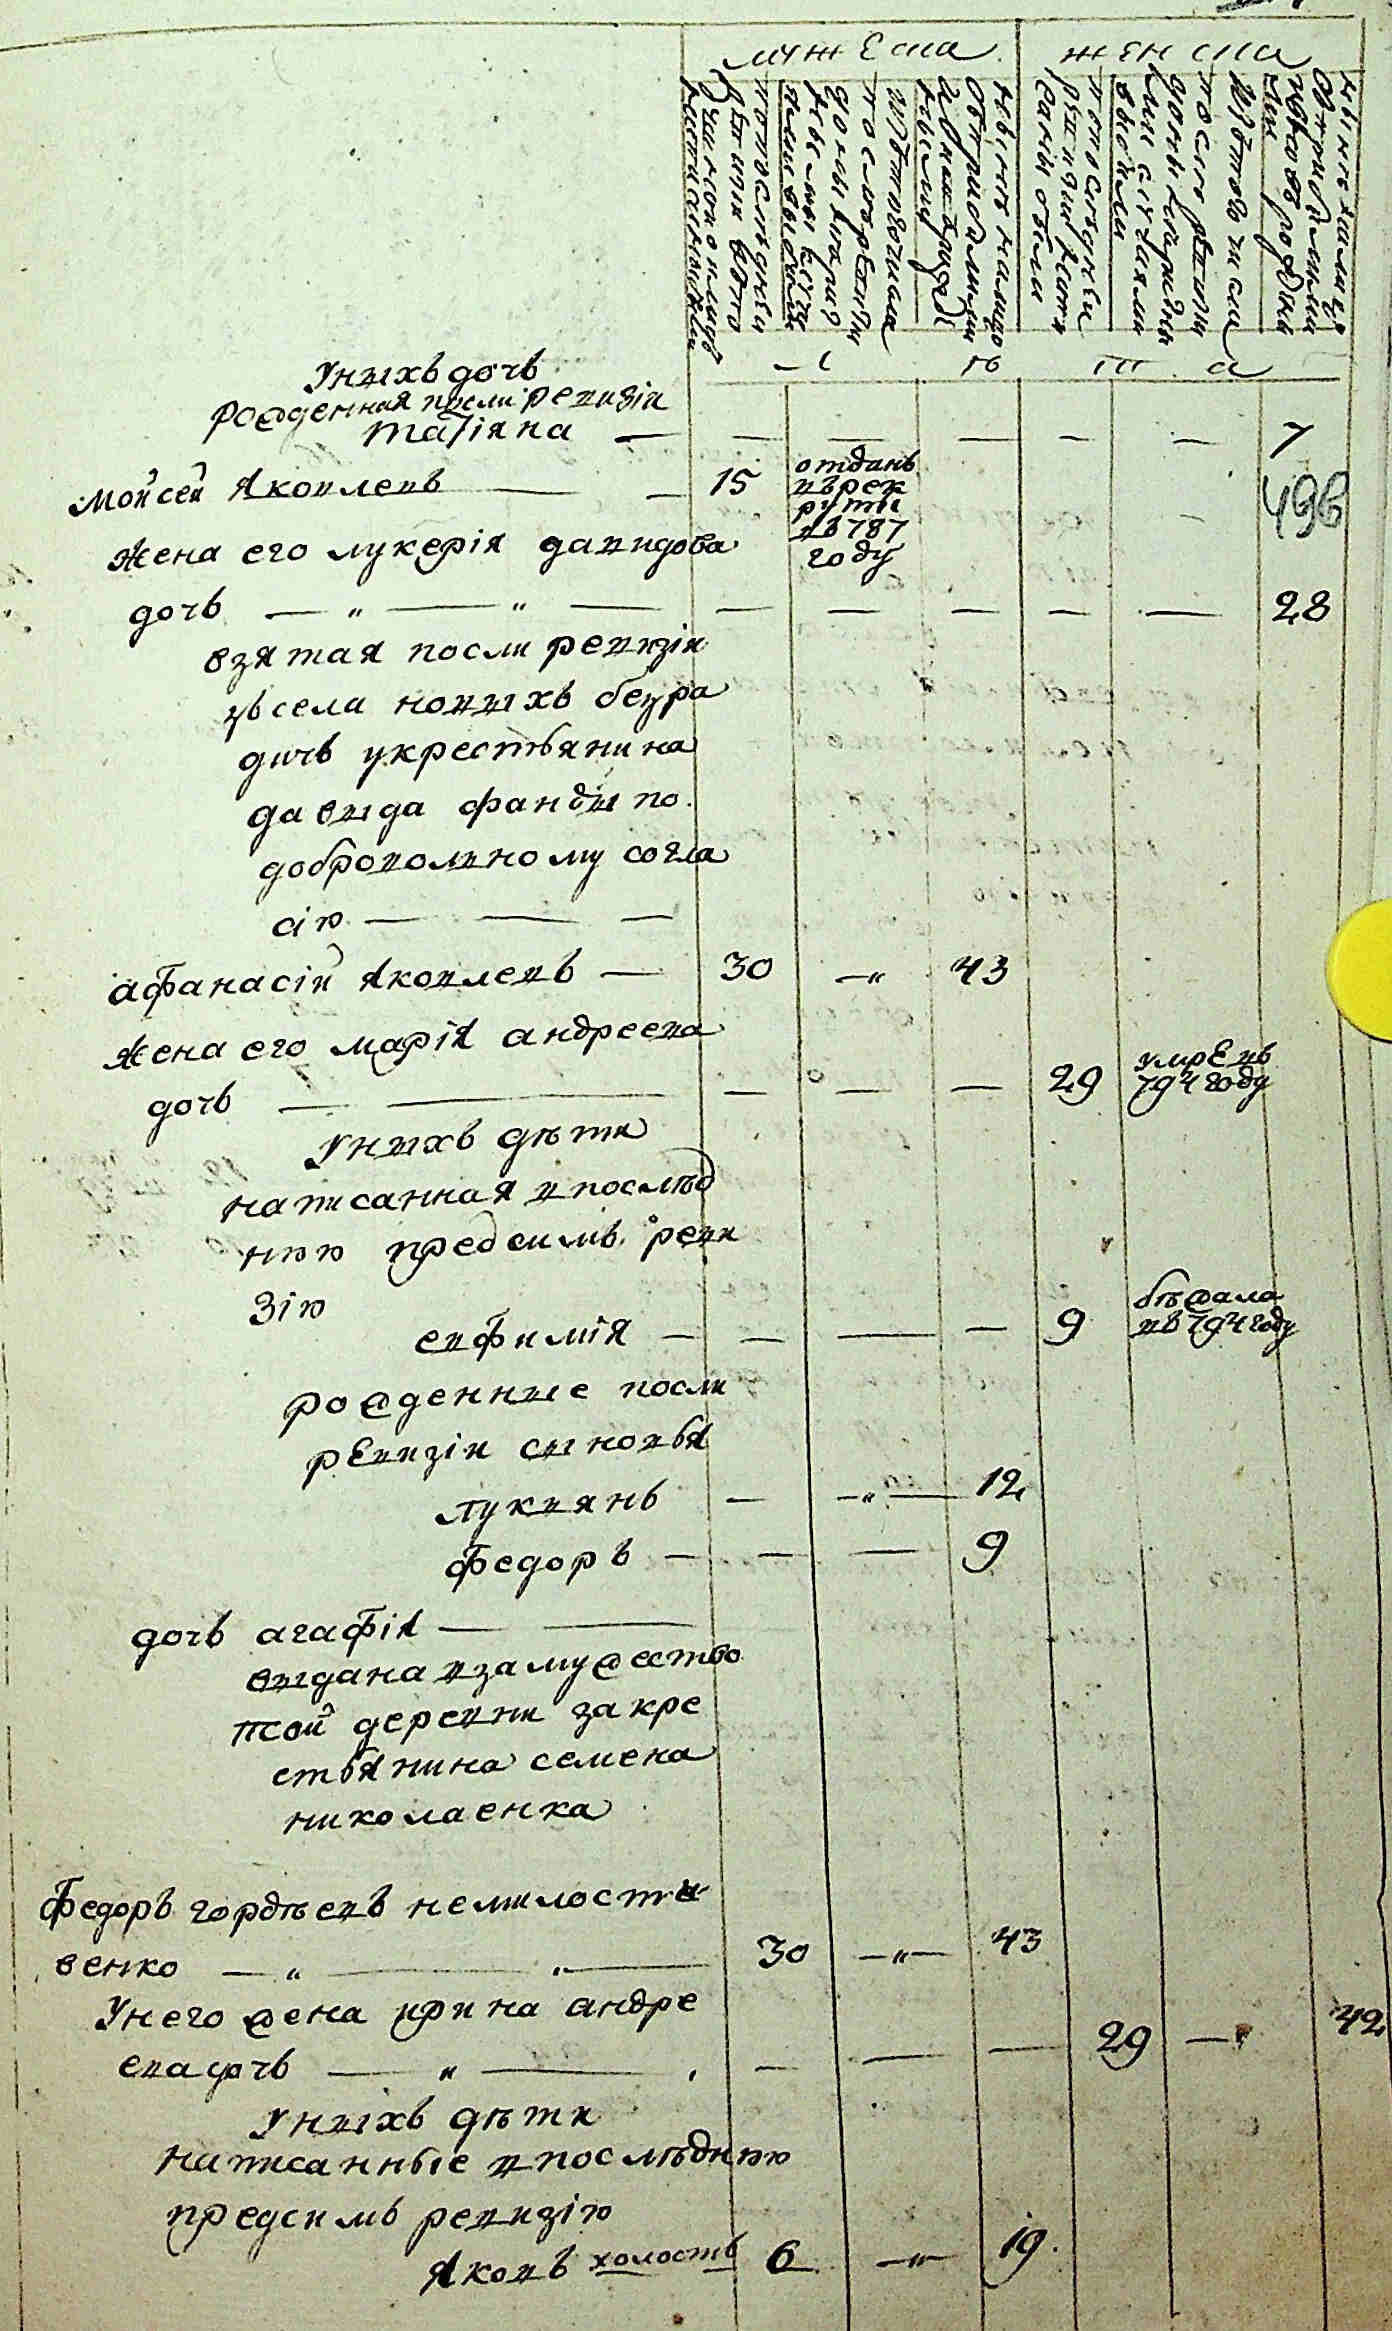 мужеска
женска
лета
У ныхъ дочь
рожденная посли ревизіи
татіяна — — — — — — 7
мойсей яковлевъ — 15 отданъ
въ рек
руты
въ 787
году
496
жена его лукерія давидова
дочь — — — — — — 28
взятая посли ревизіи
зъ села новыхъ безра
дичъ у крестьянина
давыда фанды по
добровольному согла
сію
афанасій яковлевъ — 30 — 43
жена его марія андреева
дочь — — — — 29 умре въ
794 году
У ныхъ дѣти
написанная в послѣд
нюю предсимъ реви
зію
евфимія — — — — 9 бѣжала
въ 794 году
рожденные посли
ревизіи сыновья
лукьянъ — — 12
федоръ — — — 9
дочь агафія
выдана в замужество
той деревни за кре
стьянина семена
николаенка
Федоръ гордѣевъ немилости
венко — 30 — 43
У него жена ирина андре
ева дочь — — — — 29 — 42
У ныхъ дѣти
написанные в послѣднюю
предсимъ ревизію
яковъ холостъ 6 — 19